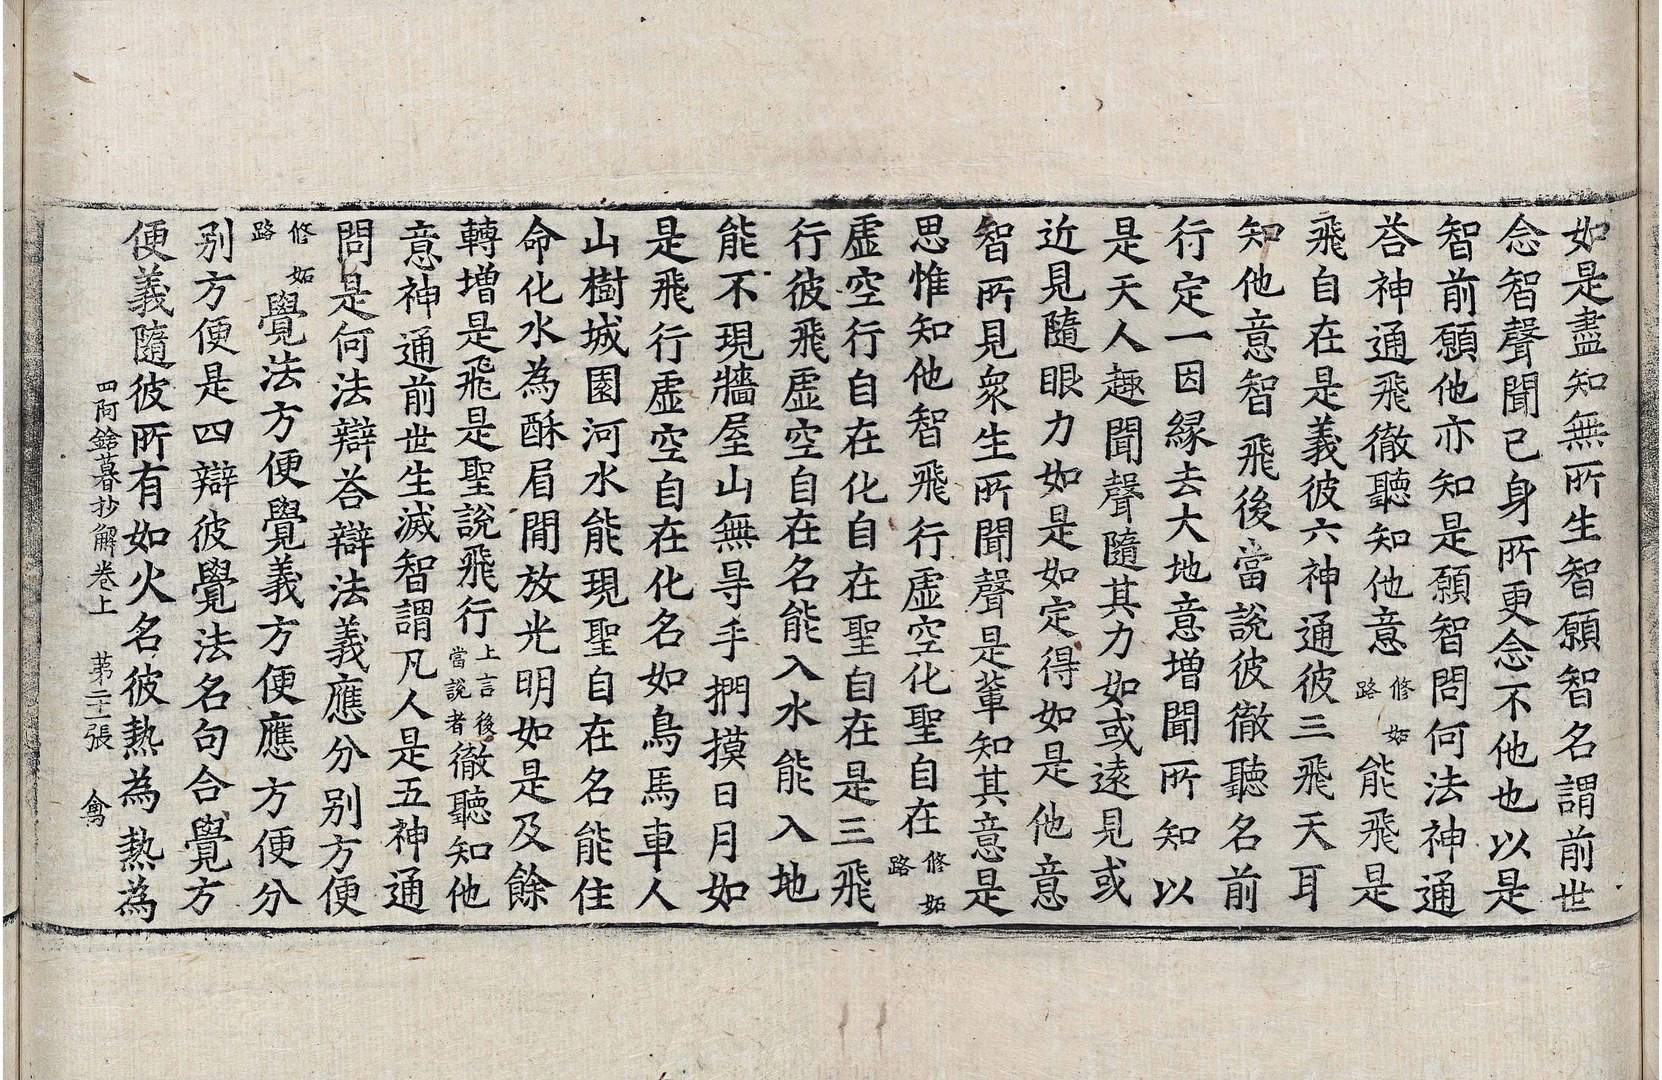 如是盡知無所生智願智名謂前世
念智聲聞已身所更念不他也以是
智前願他亦知是願智問何法神通
荅神通飛徹聽知他意修妬路能飛是
飛自在是義彼六神通彼三飛天耳
知他意智飛後當說彼徹聽名前
行定一因緣去大地意增聞所知以
是天人趣聞聲隨其力如或遠見或
近見隨眼力如是如定得如是他意
智所見衆生所聞聲是軰知其意是
思惟知他智飛行虛空化聖自在修妬路
虛空行自在化自在聖自在是三飛
行彼飛虛空自在名能入水能入地
能不現牆屋山無㝵手捫摸日月如
是飛行虛空自在化名如鳥馬車人
山樹城園河水能現聖自在名能住
命化水為酥眉間放光明如是及餘
轉增是飛是聖說飛行上言後當說者徹聽知他
意神通前世生滅智謂凡人是五神通
問是何法辯荅辯法義應分別方便
修妬路覺法方便覺義方便應方便分
別方便是四辯彼覺法名句合覺方
四阿鋡暮抄解卷上 第二十一張 禽
便義隨彼所有如火名彼熱為熱為